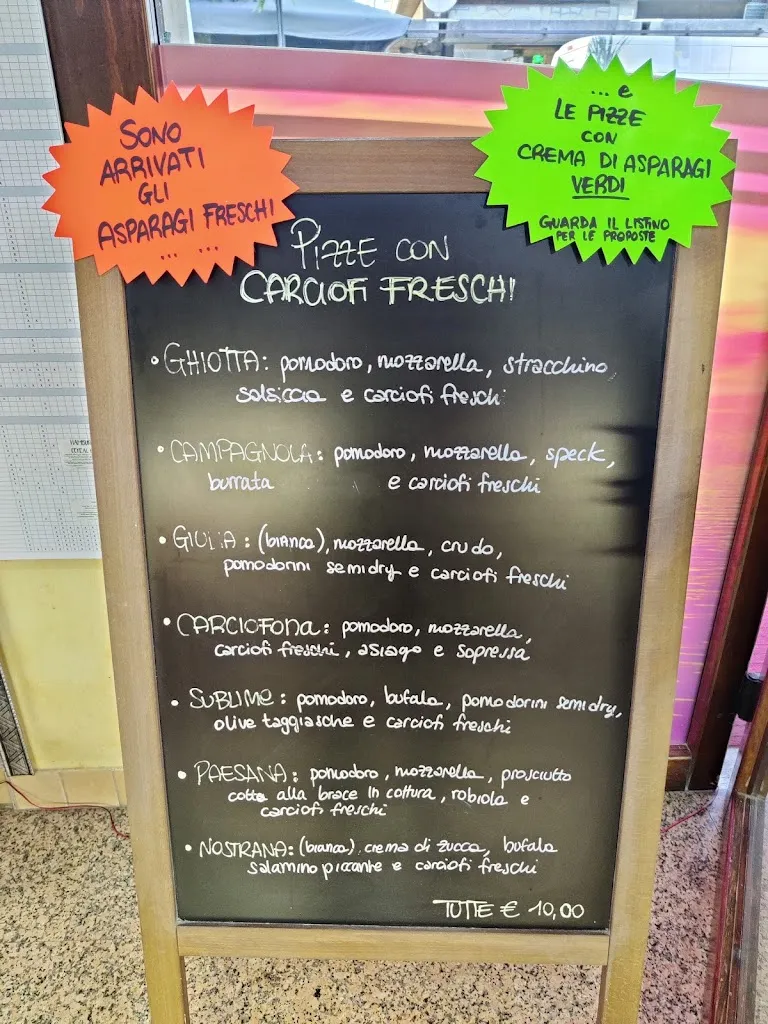 SONO
ARRIVATI
GLI
ASPARAGI FRESCHI
... ...
... e
LE PIZZE
CON
CREMA DI ASPARAGI
VERDI
GUARDA IL LISTINO
PER LE PROPOSTE
PIZZE CON
CARCIOFI FRESCHI
• GHIOTTA: pomodoro, mozzarella, stracchino,
salsiccia e carciofi freschi
• CAMPAGNOLA: pomodoro, mozzarella, speck,
burrata e carciofi freschi
• GIULIA: (bianca), mozzarella, crudo,
pomodorini semidry e carciofi freschi
• CARCIOFONA: pomodoro, mozzarella,
carciofi freschi, asiago e sopressa
• SUBLIME: pomodoro, bufala, pomodorini semidry,
olive taggiasche e carciofi freschi
• PAESANA: pomodoro, mozzarella, prosciutto
cotto alla brace in cottura, robiola e
carciofi freschi
• NOSTRANA: (bianca), crema di zucca, bufala
salamino piccante e carciofi freschi
TUTTE € 10,00